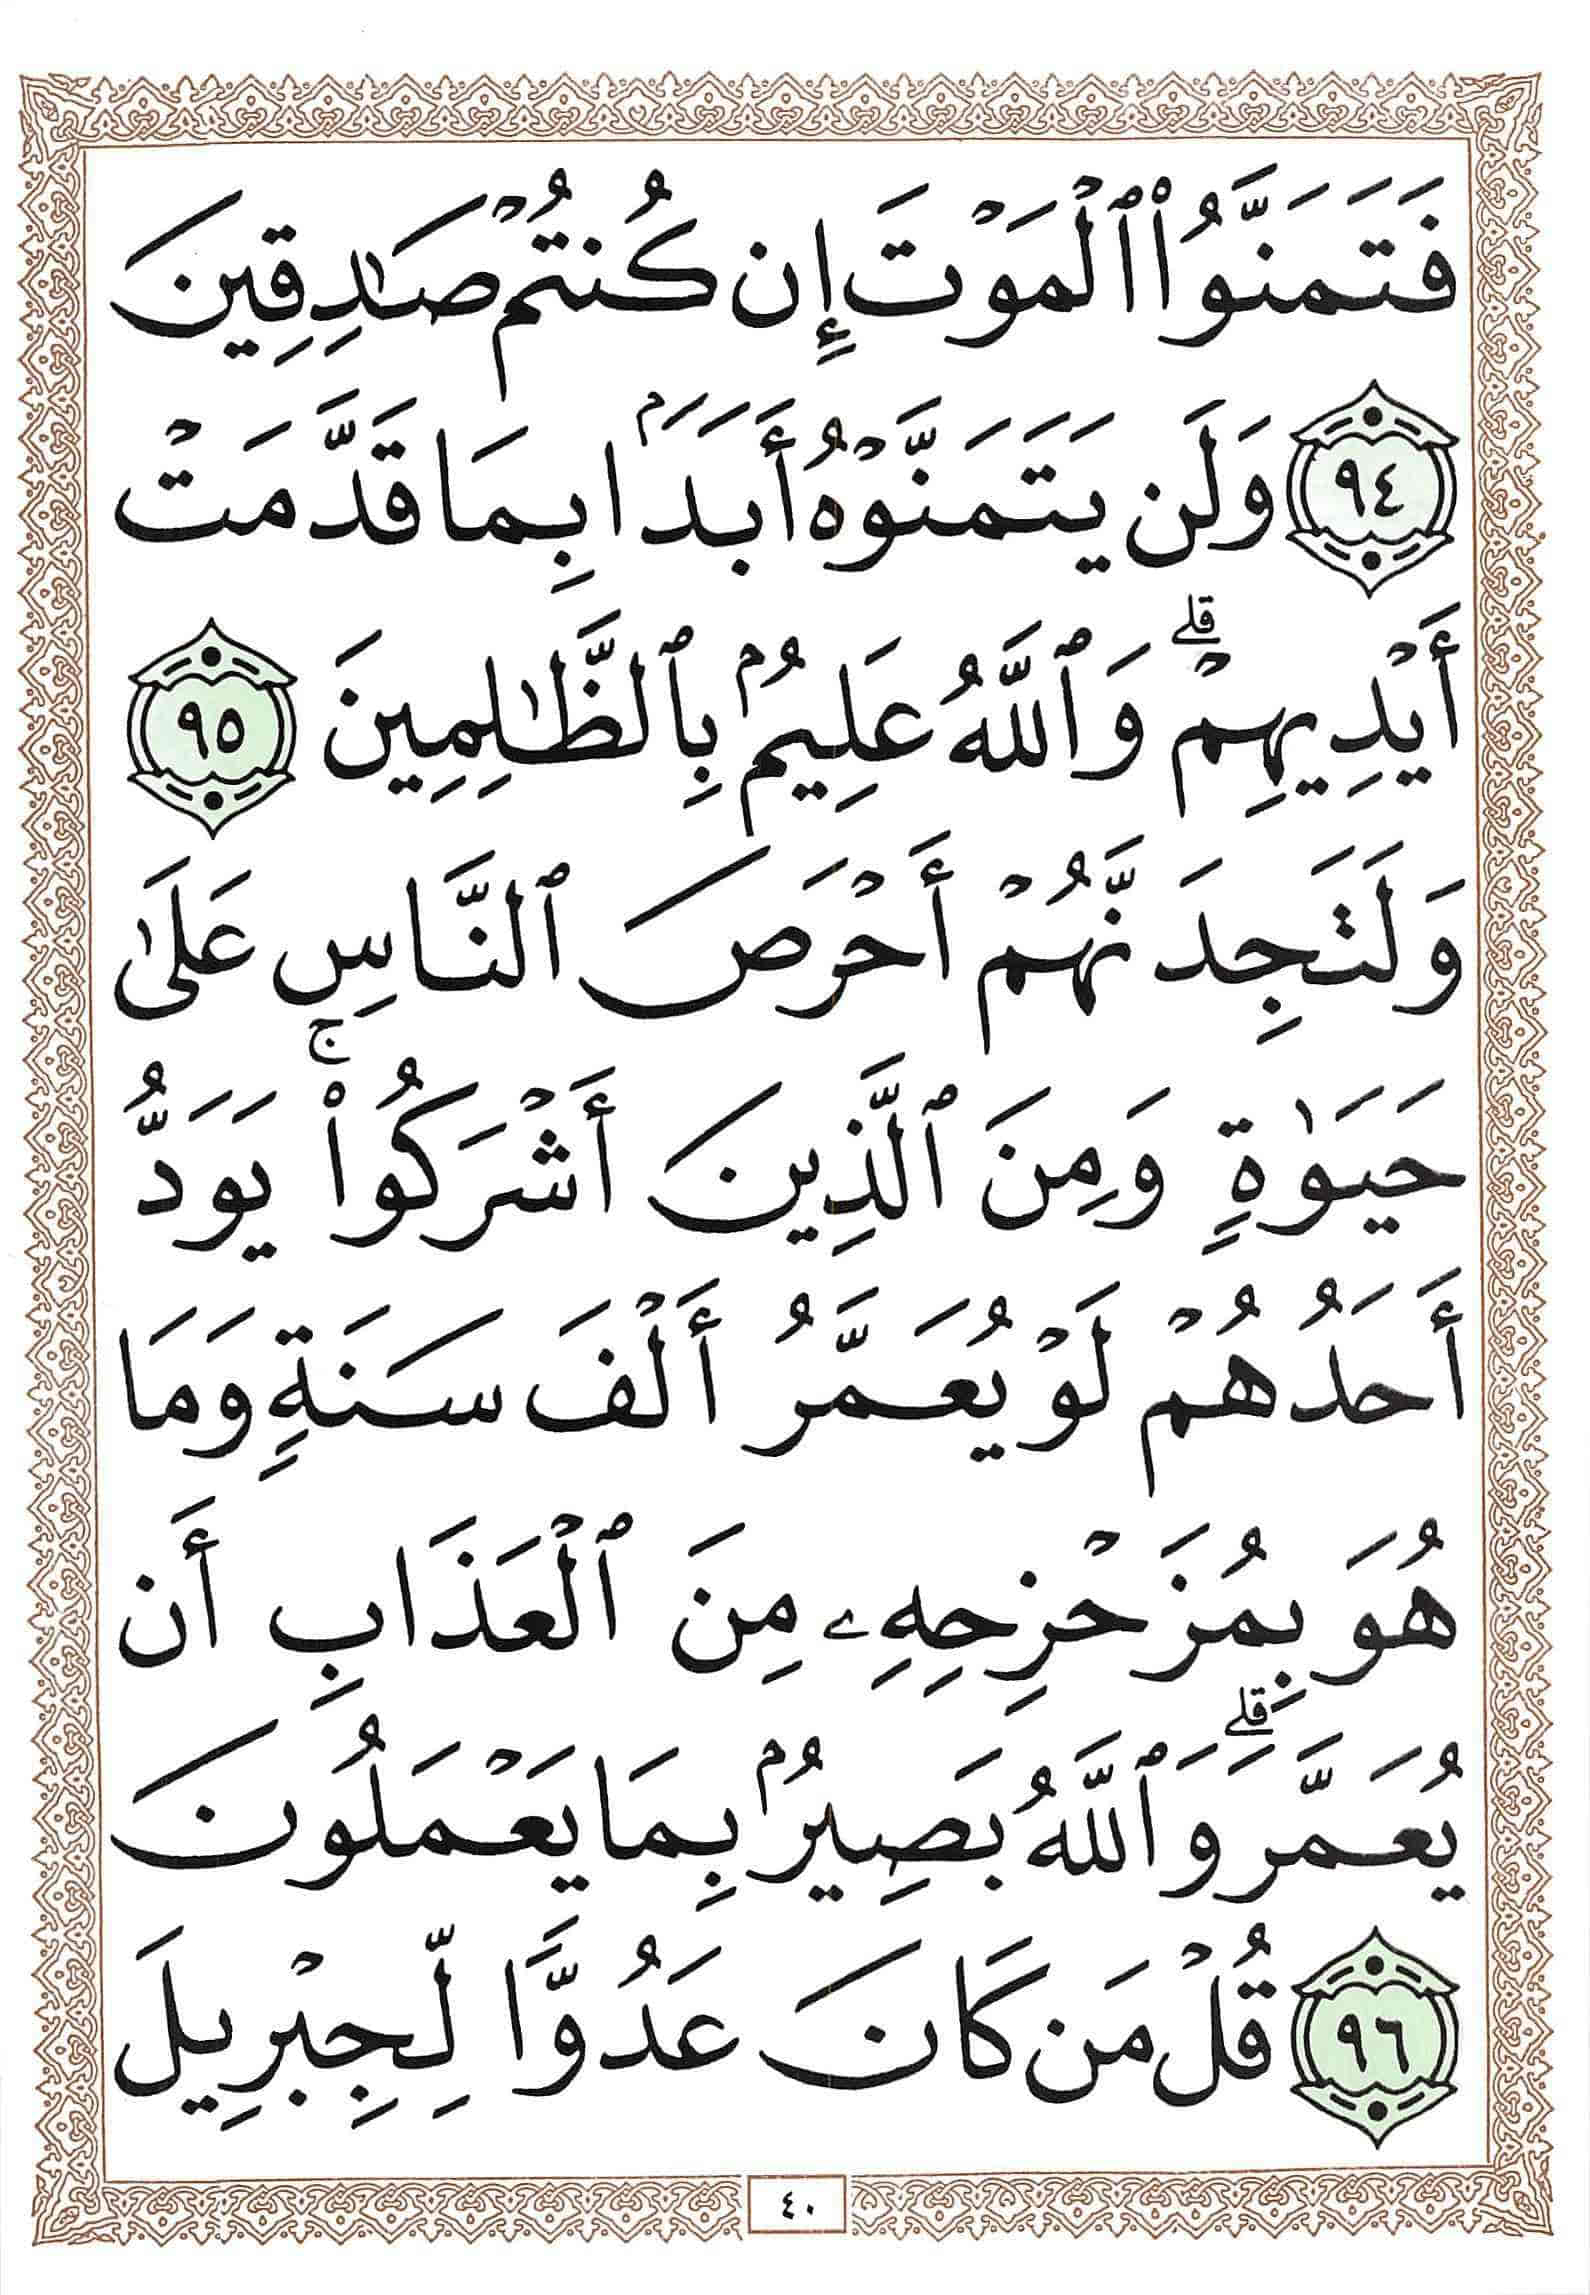 فَتَمَنَّوُا۟ ٱلْمَوْتَ إِن كُنتُمْ صَـٰدِقِينَ
٩٤ وَلَن يَتَمَنَّوْهُ أَبَدَۢا بِمَا قَدَّمَتْ
أَيْدِيهِمْ ۗ وَٱللَّهُ عَلِيمُۢ بِٱلظَّـٰلِمِينَ ٩٥
وَلَتَجِدَنَّهُمْ أَحْرَصَ ٱلنَّاسِ عَلَىٰ
حَيَوٰةٍ وَمِنَ ٱلَّذِينَ أَشْرَكُوا۟ ۚ يَوَدُّ
أَحَدُهُمْ لَوْ يُعَمَّرُ أَلْفَ سَنَةٍ وَمَا
هُوَ بِمُزَحْزِحِهِۦ مِنَ ٱلْعَذَابِ أَن
يُعَمَّرَ ۗ وَٱللَّهُ بَصِيرُۢ بِمَا يَعْمَلُونَ
٩٦ قُلْ مَن كَانَ عَدُوًّا لِّجِبْرِيلَ
٤٠